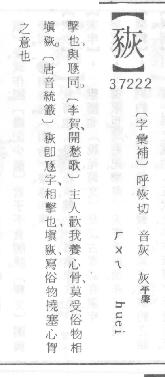 37222
〔字彙補〕呼恢切 音灰 灰平聲
ㄏㄨㄟ huei
擊也、與同。〔李賀、開愁歌〕主人歡我養心骨、莫受俗物相
塡。〔唐音統籤〕卽字、相擊也、塡、寫俗物撓塞心胷
之意也